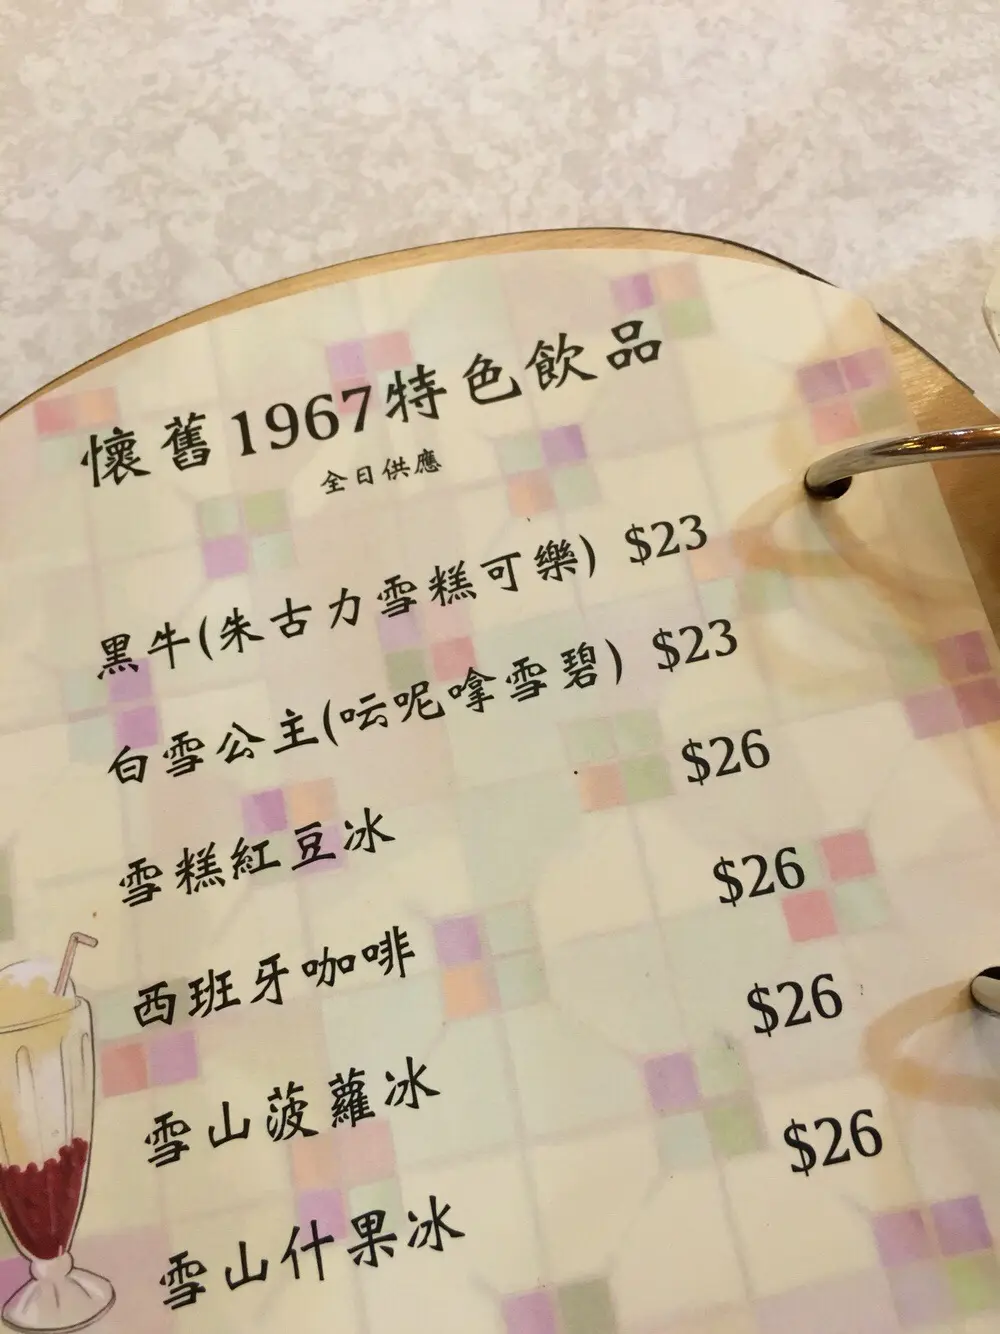 懷舊1967特色飲品
全日供應
黑牛(朱古力雪糕可樂) $23
白雪公主(呍呢嗱雪碧) $23
雪糕紅豆冰 $26
西班牙咖啡 $26
雪山菠蘿冰 $26
雪山什果冰 $26